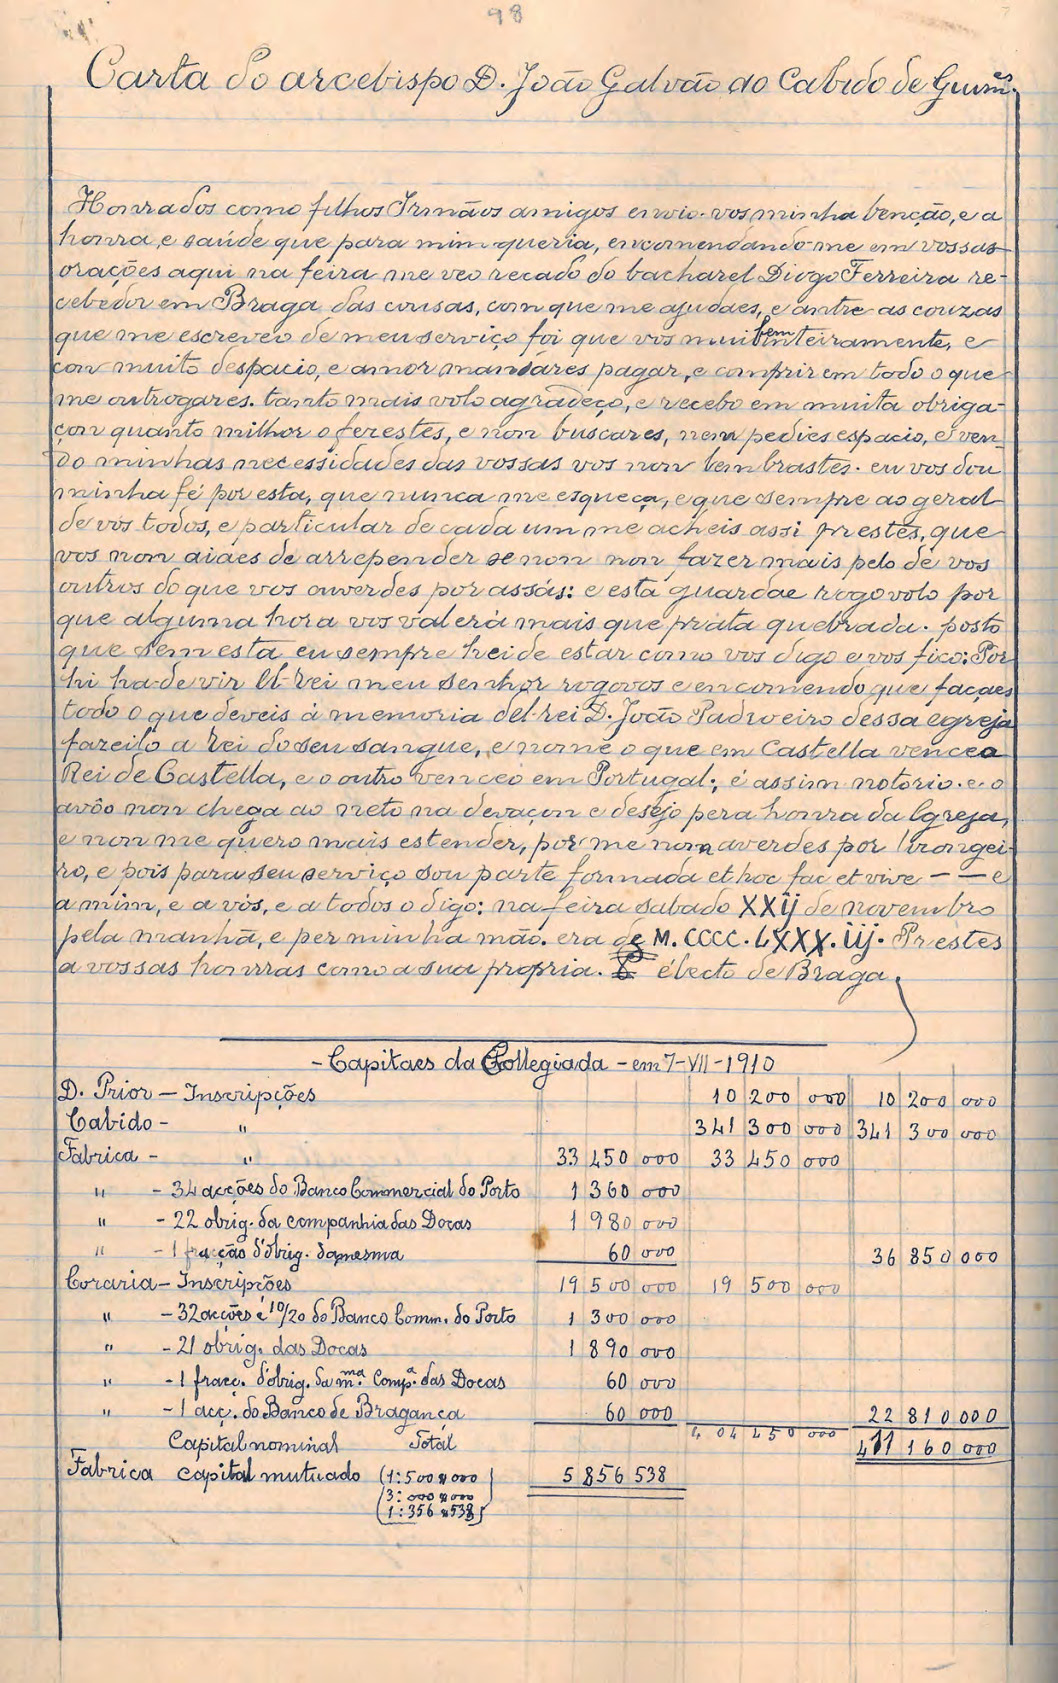 98
Carta do arcebispo D. João Galvão ao Cabido de Guim.es
Honrados como filhos Irmãos amigos envio-vos minha benção, e a
honra, e saúde que para mim queria, encomendando-me em vossas
orações aqui na feira me veo recado do bacharel Diogo Ferreira re-
cebedor em Braga das cousas, com que me ajudaes, e antre as couzas
que me escreveo de meu serviço foi que vos mui bem inteiramente, e
con muito despacio, e amor mandáres pagar, e comprir em todo o que
me outrogares. tanto mais volo agradeço, e recebo em muita obriga-
çon quanto milhor oferestes, e non buscares, nem pedies espacio, e ven-
do minhas necessidades das vossas vos non lembrastes. eu vos dou
minha fé por esta, que nunca me esqueça, e que sempre ao geral
de vós todos, e particular de cada um me acheis assi prestes, que
vos non aiaes de arrepender se non non fazer mais pelo de vos
outros do que vos ouverdes por assás: e esta guardae rogovolo por
que alguma hora vos valerá mais que prata quebrada. posto
que sem esta eu sempre hei de estar como vos digo e vos fico: Por
hi ha-de vir El-rei meu senhor rogovos e encomendo que façaes
todo o que deveis á memoria del-rei D. João Padroeiro dessa egreja
fazeilo a rei do seu sangue, e nome o que em Castella venceo
Rei de Castella, e o outro venceo em Portugal; é assim notorio. e o
avôo non chega ao neto na devaçon e desejo pera honra da Egreja,
e non me quero mais estender, por me non averdes por lirongei-
ro, e pois para seu serviço sou parte formada et hoc fac et vive — — e
a mim, e a vós, e a todos o digo: na feira sabado XXij de novembro
pela manhã, e per minha mão. era de M.CCCC.LXXX.iij. Prestes
a vossas honrras como a sua propria. électo de Braga
- Capitaes da Collegiada - em 7-VII-1910
D. Prior — Inscripções 10 200 000 10 200 000
Cabido - " 341 300 000 341 300 000
Fabrica - " 33 450 000 33 450 000
" - 34 acções do Banco Commercial do Porto 1 360 000
" - 22 obrig. da companhia das Docas 1 980 000
" - 1 fracção d'obrig. da mesma 60 000 36 850 000
Coraria - Inscripções 19 500 000 19 500 000
" - 32 acções e 10/20 do Banco Comm. do Porto 1 300 000
" - 21 obrig. das Docas 1 890 000
" - 1 fracç. d'obrig. da m.ma Comp.a das Docas 60 000
" - 1 acç. do Banco de Bragança 60 000 22 810 000
Capital nominal Total 404 450 000 411 160 000
Fabrica capital mutuado (1:500$000 5 856 538
(3:000$000
(1:356$538